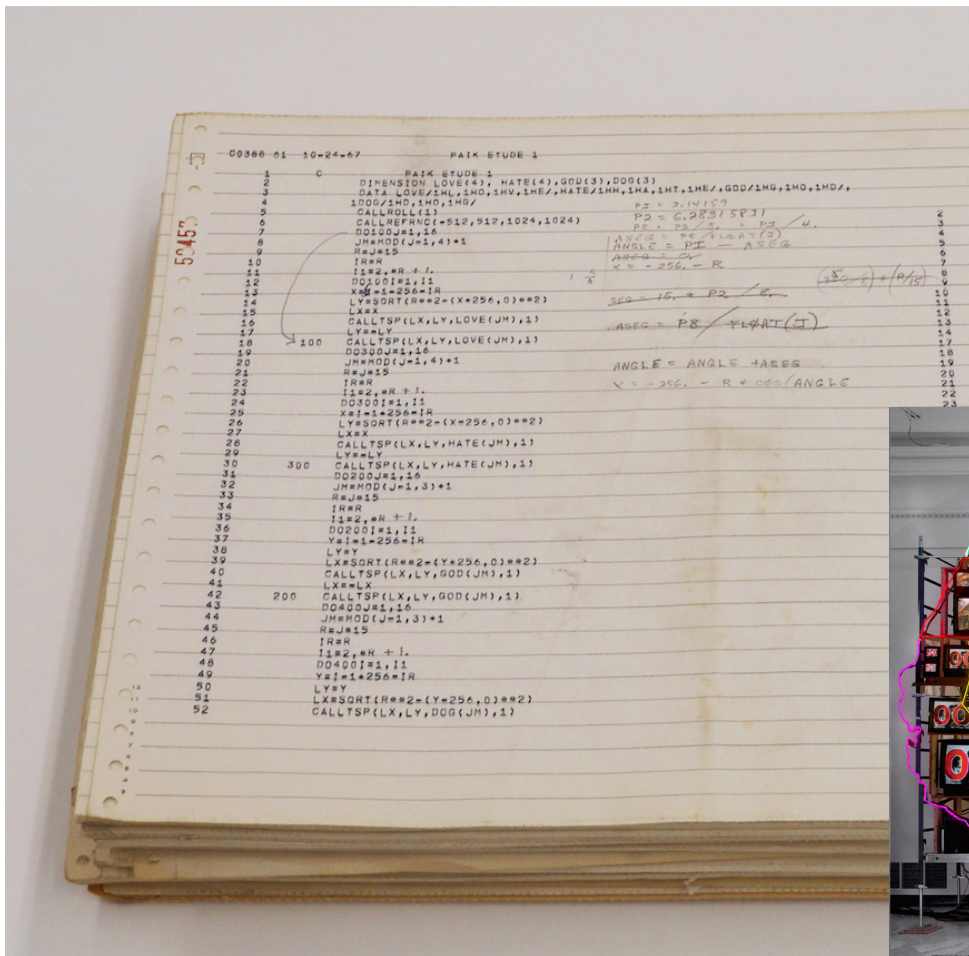 C0388 61 10-24-67 PAIK ETUDE 1
1 C PAIK ETUDE 1
2 DIMENSION LOVE(4), HATE(4),GOD(3),DOG(3)
3 DATA LOVE/1HL,1HO,1HV,1HE/,HATE/1HH,1HA,1HT,1HE/,GOD/1HG,1HO,1HD/,
4 1DOG/1HD,1HO,1HG/
5 CALLROLL(1)
6 CALLREFRNC(-512,512,1024,1024)
7 DO100J=1,16
8 JM=MOD(J-1,4)+1
9 R=J*15
10 IR=R
11 I1=2.*R + 1.
12 DO100I=1,I1
13 X=I-1-256-IR
14 LY=SQRT(R**2-(X+256.0)**2)
15 LX=X
16 CALLTSP(LX,LY,LOVE(JM),1)
17 LY=-LY
18 100 CALLTSP(LX,LY,LOVE(JM),1)
19 DO300J=1,16
20 JM=MOD(J-1,4)+1
21 R=J*15
22 IR=R
23 I1=2.*R + 1.
24 DO300I=1,I1
25 X=I-1+256-IR
26 LY=SQRT(R**2-(X-256.0)**2)
27 LX=X
28 CALLTSP(LX,LY,HATE(JM),1)
29 LY=-LY
30 300 CALLTSP(LX,LY,HATE(JM),1)
31 DO200J=1,16
32 JM=MOD(J-1,3)+1
33 R=J*15
34 IR=R
35 I1=2.*R + 1.
36 DO200I=1,I1
37 Y=I-1-256-IR
38 LY=Y
39 LX=SQRT(R**2-(Y+256.0)**2)
40 CALLTSP(LX,LY,GOD(JM),1)
41 LX=-LX
42 200 CALLTSP(LX,LY,GOD(JM),1)
43 DO400J=1,16
44 JM=MOD(J-1,3)+1
45 R=J*15
46 IR=R
47 I1=2.*R + 1.
48 DO400I=1,I1
49 Y=I-1+256-IR
50 LY=Y
51 LX=SQRT(R**2-(Y-256.0)**2)
52 CALLTSP(LX,LY,DOG(JM),1)
PI = 3.14159
P2 = 6.28315831
ASEG = P8/FLOAT(J)
ANGLE = PI - ASEG
ASEG = 0.
X = -256. - R
SEG = 15. * P2 / 8.
ASEG = P8/FLOAT(J)
ANGLE = ANGLE + ASEG
X = -256. - R * COS(ANGLE